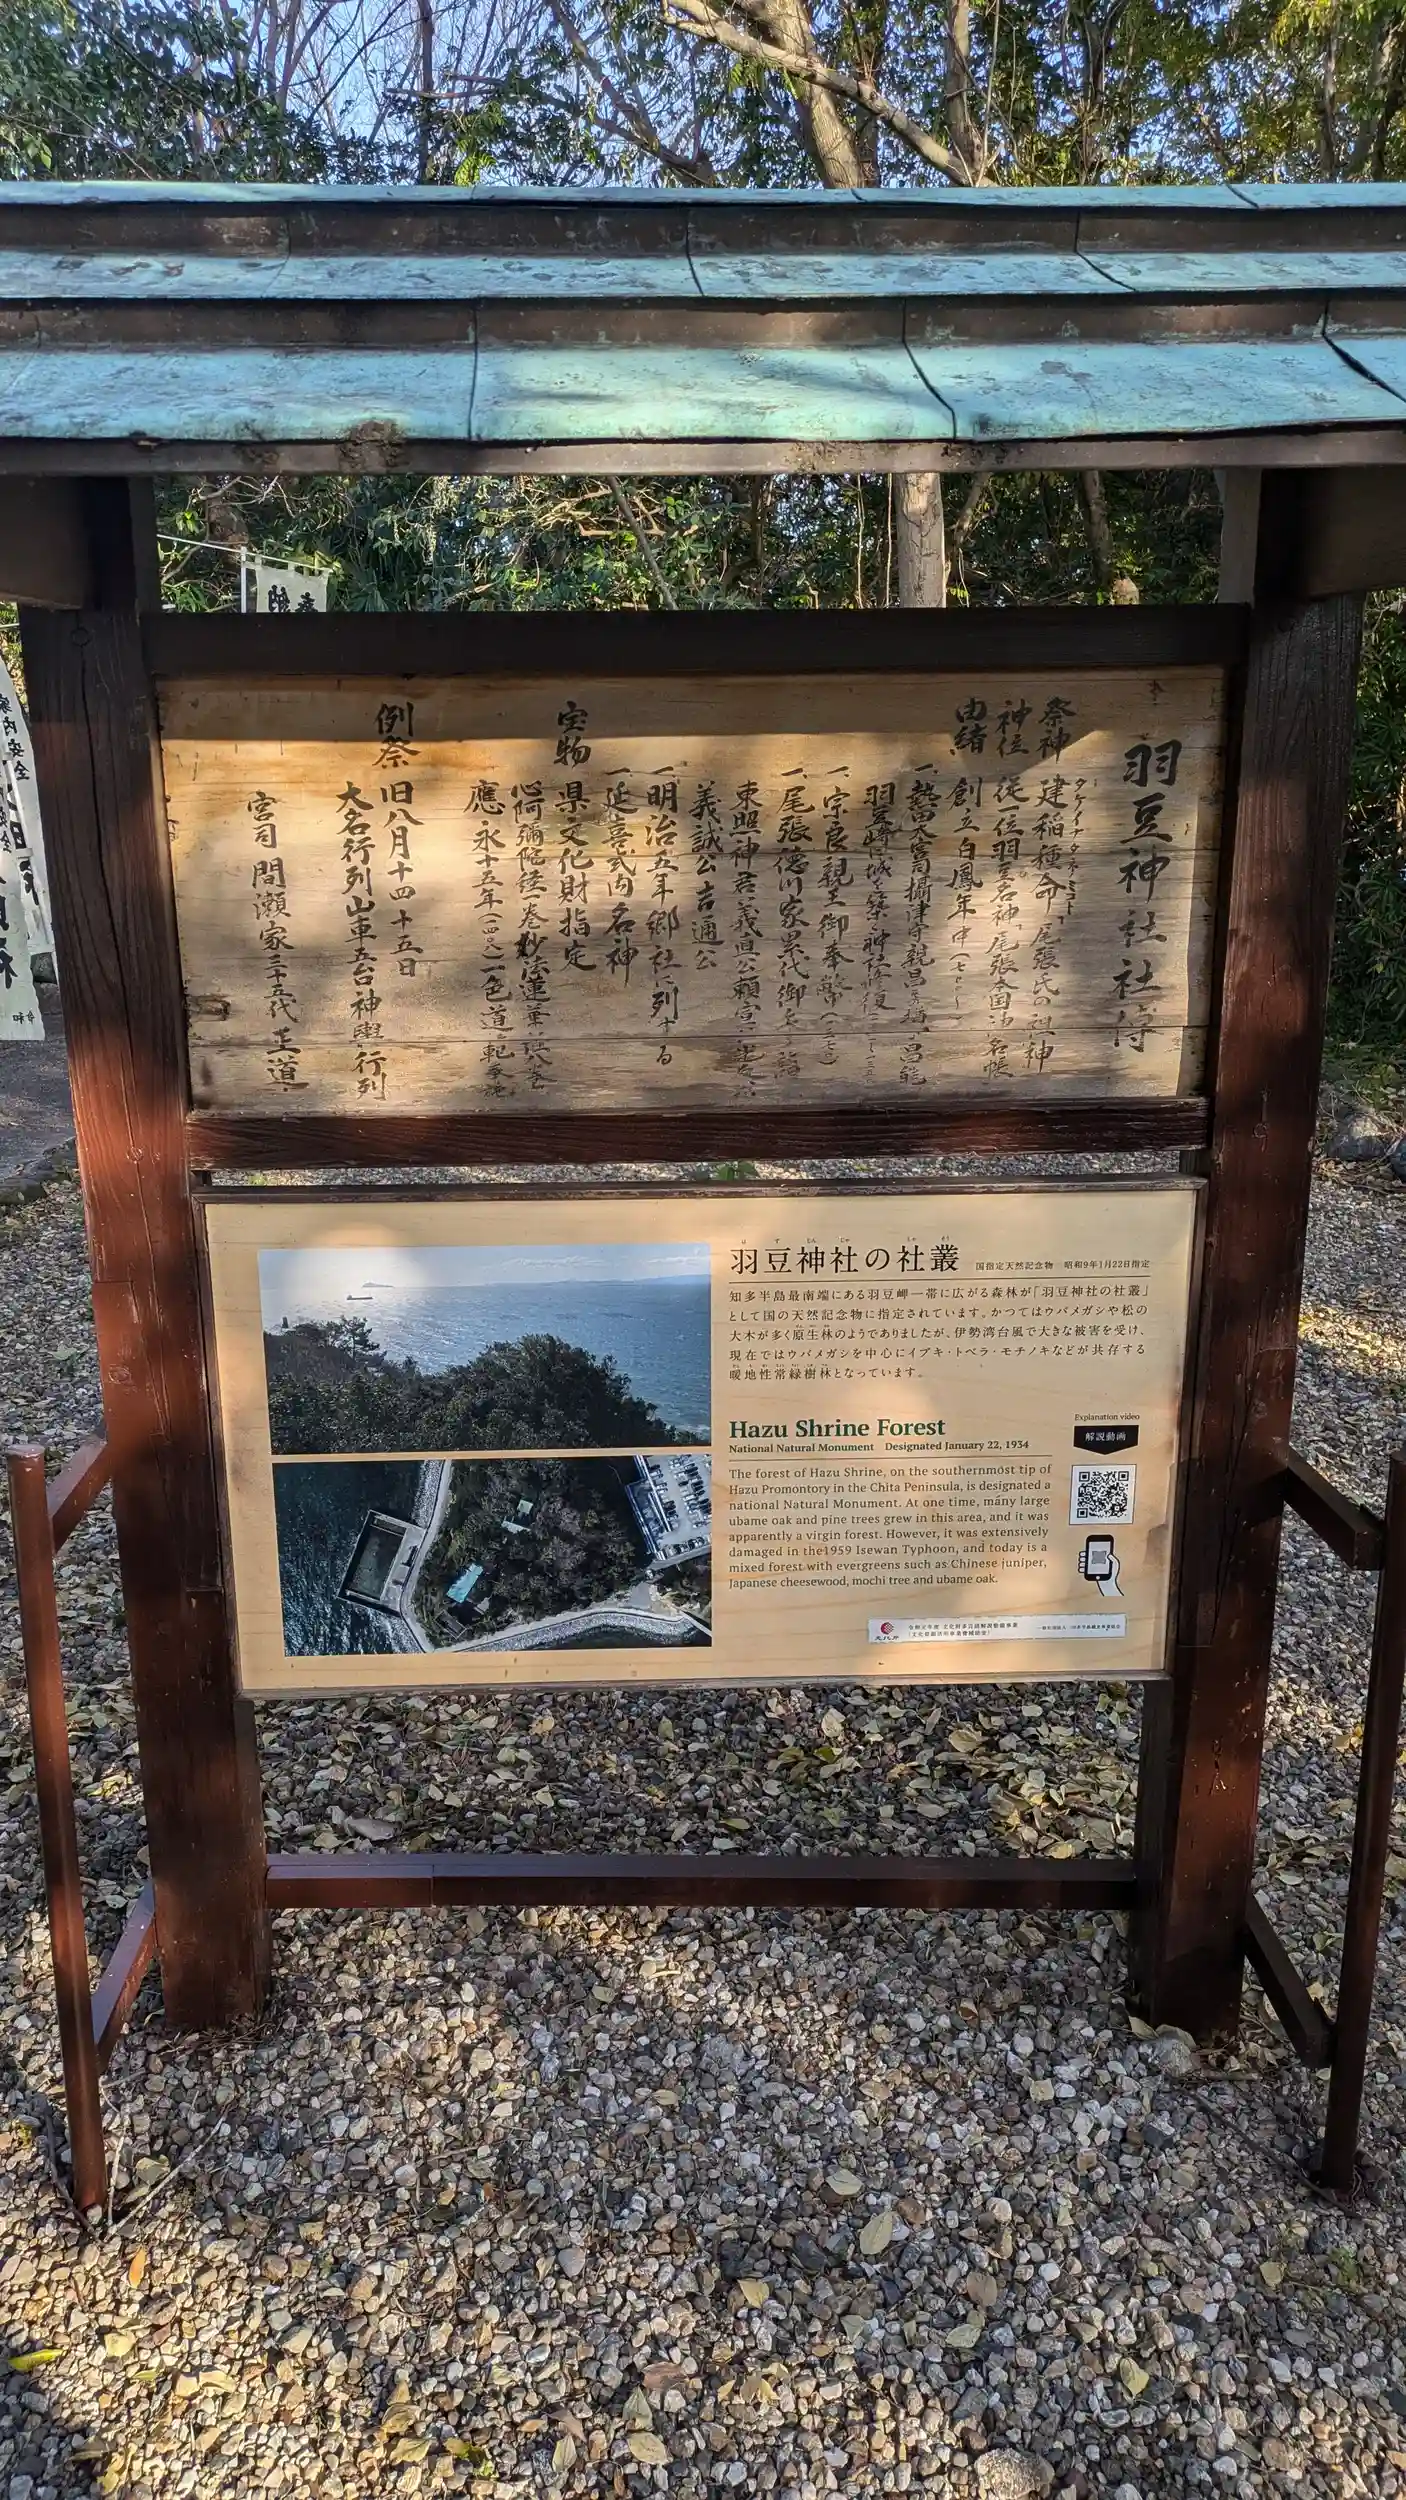 羽豆神社社傳
祭神 建稲種命「尾張氏の祖神
タケイナダネノミコト
神位 従一位羽豆名神「尾張本国神名帳
由緒 創立白鳳年中
一、熱田大宮司攝津守親昌 昌能
羽豆崎に城を築き神社修復
一、宗良親王御奉幣
一、尾張徳川家累代御
東照神君 義直公 頼宣
義誠公 吉通公
一、明治五年郷社に列する
一、延喜式内名神
宝物 県文化財指定
心阿彌陀経一巻 妙法蓮華経八巻
應永十五年 一色道範奉施
例祭 旧八月十四 十五日
大名行列山車五台神輿行列
宮司 間瀬家三十五代 主道
羽豆神社の社叢 国指定天然記念物 昭和9年1月22日指定
知多半島最南端にある羽豆岬一帯に広がる森林が「羽豆神社の社叢」
として国の天然記念物に指定されています。かつてはウバメガシや松の
大木が多く原生林のようでありましたが、伊勢湾台風で大きな被害を受け、
現在ではウバメガシを中心にイブキ・トベラ・モチノキなどが共存する
暖地性常緑樹林となっています。
Hazu Shrine Forest
National Natural Monument Designated January 22, 1934
The forest of Hazu Shrine, on the southernmost tip of
Hazu Promontory in the Chita Peninsula, is designated a
national Natural Monument. At one time, many large
ubame oak and pine trees grew in this area, and it was
apparently a virgin forest. However, it was extensively
damaged in the1959 Isewan Typhoon, and today is a
mixed forest with evergreens such as Chinese juniper,
Japanese cheesewood, mochi tree and ubame oak.
Explanation video
解説動画
文化庁
令和元年度 文化財多言語解説整備事業
家内安全